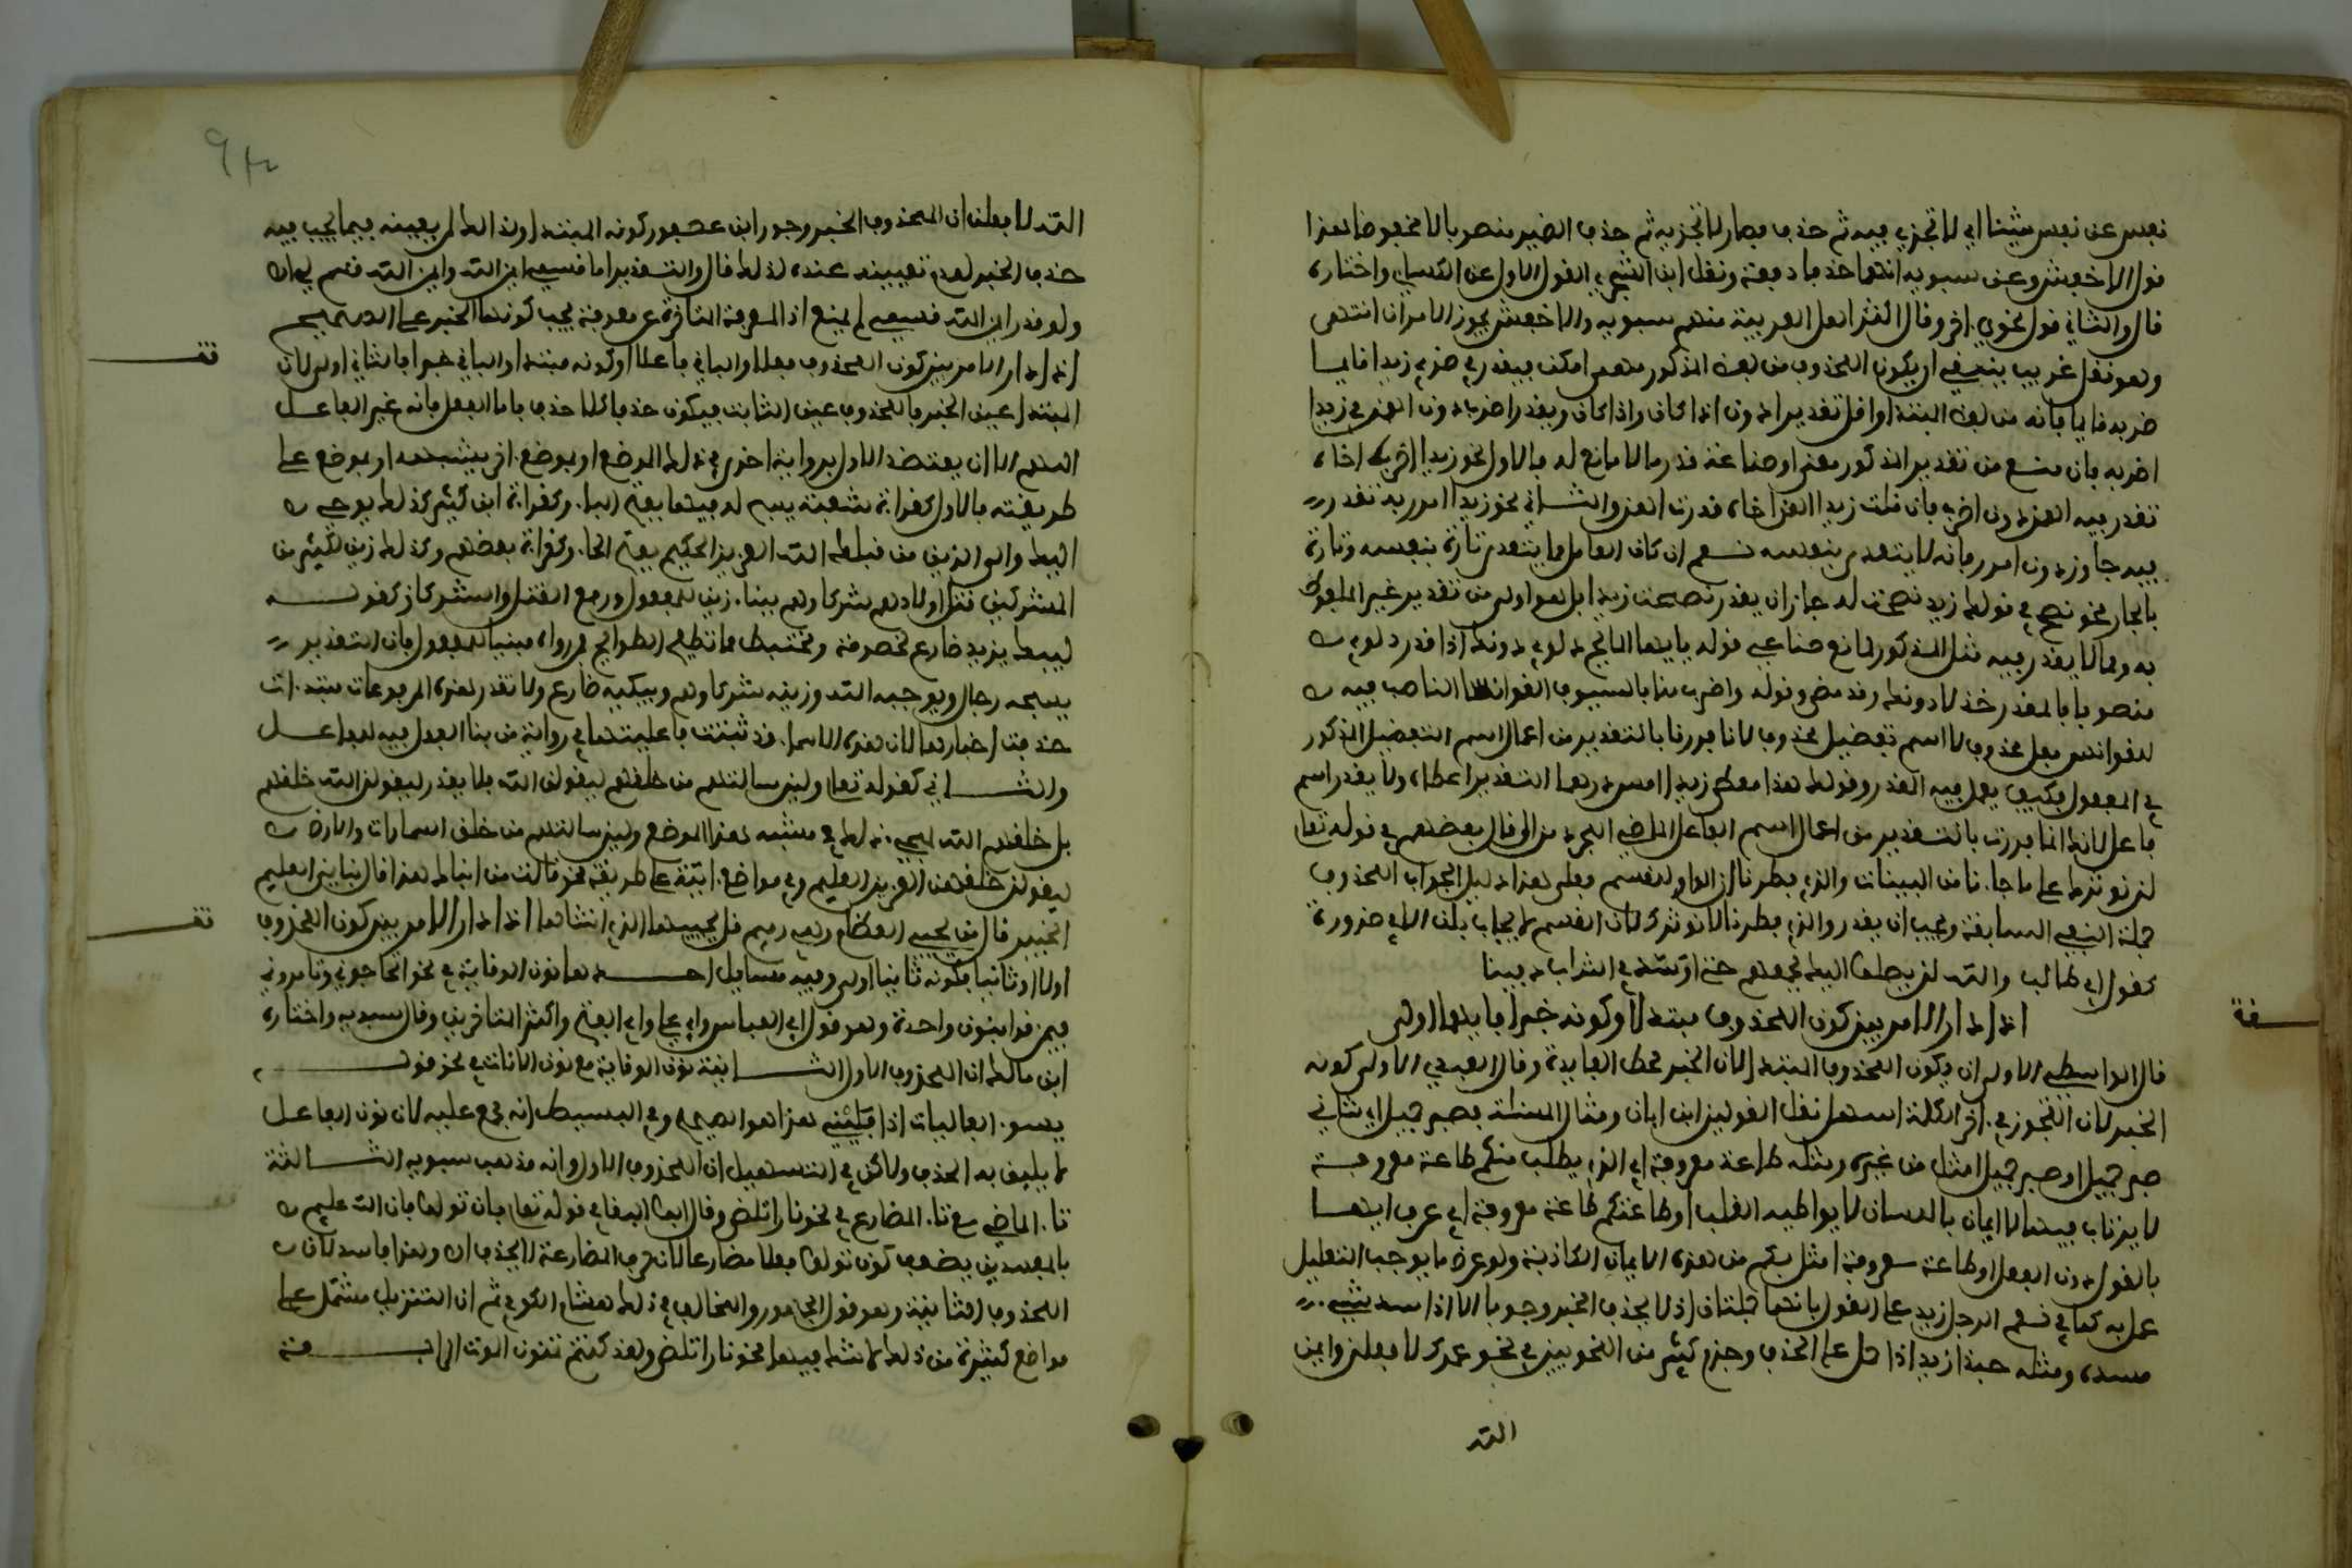 نفس عن نفس شيئا اي لا تجزي فيه ثم حذف في فصار لا تجزيه ثم حذف الضمير منصوبا لا مخفوضا هذا
قول الاخفش وعن سيبويه انهما حذفا دفعة ونقل ابن الشجري القول الاول عن الكسائي واختاره
قال والثاني قول نحوي اخر وقال اكثر اهل العربية منهم سيبويه والاخفش يجوز الامران انتهى
وهو نقل غريب ينبغي ان يكون المحذوف من لفظ المذكور مهما امكن فيقدر في ضربي زيدا قايما
ضربه قايما فانه من لفظ المبتدا واقل تقدير ا دون اذا كان واذ كان ويقدر اضرب دون اهن في زيدا
اضربه فان منع من تقدير المذكور معنى او صناعة قدر ما لا مانع له فالاول نحو زيدا اضرب اخاه
تقدر فيه اهن دون اضرب فان قلت زيدا اهن اخاه قدرت اهن والثاني نحو زيدا امرر به تقدر
فيه جاوز دون امرر فانه لا يتعدى بنفسه نعم ان كان العامل مما يتعدى تارة بنفسه وتارة
بالجار نحو نصح في قولك زيد نصحت له جاز ان يقدر نصحت زيدا بل هو اولى من تقدير غير الملفوظ
به ومما لا يقدر فيه مثل المذكور لمانع صناعي قوله يا ايها المايح دلوي دونك اذا قدر دلوي
منصوبا فالمقدر خذ لا دونك وقد مضى وقوله واضرب منا بالسيوف القوانسا الناصب فيه
للقوانس فعل محذوف لا اسم تفضيل محذوف لانا فررنا بالتقدير من اعمال اسم التفضيل المذكور
في المفعول فكيف يعمل فيه المقدر وقولك هذا معطي زيد امس درهما التقدير اعطاه ولا يقدر اسم
فاعل لانك انما فررت بالتقدير من اعمال اسم الفاعل الماضي المجرد من ال وقال بعضهم في قوله تعالى
لن نوثرك على ما جاءنا من البينات والذي فطرنا ان الواو للقسم فعلى هذا دليل الجواب المحذوف
جملة النفي السابقة ويجب ان يقدر والذي فطرنا لا نوثرك لان القسم لا يجاب بلن الا في ضرورة
كقول ابي طالب والله لن يصلوا اليك بجمعهم حتى اوسد في التراب دفينا
اذا دار الامر بين كون المحذوف مبتدا وكونه خبرا فايهما اولى
قال الواسطي الاولى ان يكون المحذوف المبتدا لان الخبر محط الفايدة وقال العبدي الاولى كونه
الخبر لان التجوز في اخر الكلمة اسهل نقل القولين ابن اياز ومثال المسئلة فصبر جميل اي شاني
صبر جميل او صبر جميل امثل من غيره ومثله طاعة معروفة اي الذي يطلب منكم طاعة معروفة
لا يرتاب فيها لا ايمان باللسان لا يواطيه القلب او طاعتكم طاعة معروفة اي عرف انها
بالقول دون الفعل او طاعة معروفة امثل بكم من هذه الايمان الكاذبة ولو عرض ما يوجب التعليل
عمل به كما في نعم الرجل زيد على القول بانهما جملتان اذ لا يحذف الخبر وجوبا الا اذا سد شيء
مسده ومثله حبذا زيد اذا حمل على الحذف وجزم كثير من النحويين في نحو عمرك لا فعلن وايمن
الله
الله لافعلن ان المحذوف الخبر وجوز ابن عصفور كونه المبتدا ولذلك لم يعينه فيما يجب فيه
حذف الخبر لعدم تعيينه عنده لذلك قال والتقدير اما قسمي ايمن الله وايمن الله قسم لي
ولو قدر ايمن الله قسمي لم يمنع اذ المعرفة المتاخرة عن معرفة يجب كونها الخبر على الصحيح
اذا دار الامر بين كون المحذوف فعلا والباقي فاعلا وكونه مبتدا والباقي خبرا فالثاني اولى لان
المبتدا عين الخبر فالمحذوف عين الثابت فيكون حذفا كلا حذف فاما الفعل فانه غير الفاعل
اللهم الا ان يعتضد الاول برواية اخرى في ذلك الموضع او بموضع اخر يشبهه او بموضع على
طريقته فالاول كقراءة شعبة يسبح له فيها بفتح الباء وكقراءة ابن كثير كذلك يوحى
اليك والى الذين من قبلك الله العزيز الحكيم بفتح الحاء وكقراءة بعضهم وكذلك زين لكثير من
المشركين قتل اولادهم شركاوهم ببناء زين للمفعول ورفع القتل والشركا وكقوله
ليبك يزيد ضارع لخصومة ومختبط مما تطيح الطوائح فمن رواه مبنيا للمفعول فان التقدير
يسبحه رجال ويوحيه الله وزينه شركاوهم ويبكيه ضارع ولا تقدر هذه المرفوعات مبتدات
حذفت اخبارها لان هذه الاسماء قد ثبتت فاعليتها في رواية من بنى الفعل فيه للفاعل
والثاني كقوله تعالى ولين سالتهم من خلقهم ليقولن الله فلا يقدر ليقولن الله خلقهم
بل خلقهم الله لمجيء ذلك في شبه هذا الموضع ولين سالتهم من خلق السماوات والارض
ليقولن خلقهن العزيز العليم وفي مواضع اتية على طريقته نحو قالت من انباك هذا قال نباني العليم
الخبير قال من يحيي العظام وهي رميم قل يحييها الذي انشاها اذا دار الامر بين كون المحذوف
اولا او ثانيا فكونه ثانيا اولى وفيه مسايل احداها نون الوقاية في نحو اتحاجوني وتامروني
فيمن قرا بنون واحدة وهو قول ابي العباس وابي علي وابي الفتح واكثر المتاخرين وقال سيبويه واختاره
ابن مالك ان المحذوف الاول الثانية نون الوقاية مع نون الاناث في نحو قوله
يسوء الفاليات اذا فليني هذا هو الصحيح وفي البسيط انه مجمع عليه لان نون الفاعل
لا يليق به الحذف ولكن في التسهيل ان المحذوف الاول وانه مذهب سيبويه الثالثة
تاء الماضي مع تاء المضارع في نحو نارا تلظى وقال ابو البقا في قوله تعالى فان تولوا فان الله عليم
بالمفسدين يضعف كون تولوا فعلا مضارعا لان حرف المضارعة لا يحذف اه وهذا فاسد لان
المحذوف الثانية وهو قول الجمهور والمخالف في ذلك هشام الكوفي ثم ان التنزيل مشتمل على
مواضع كثيرة من ذلك لا شك فيها نحو نارا تلظى ولقد كنتم تمنون الموت الرابعة